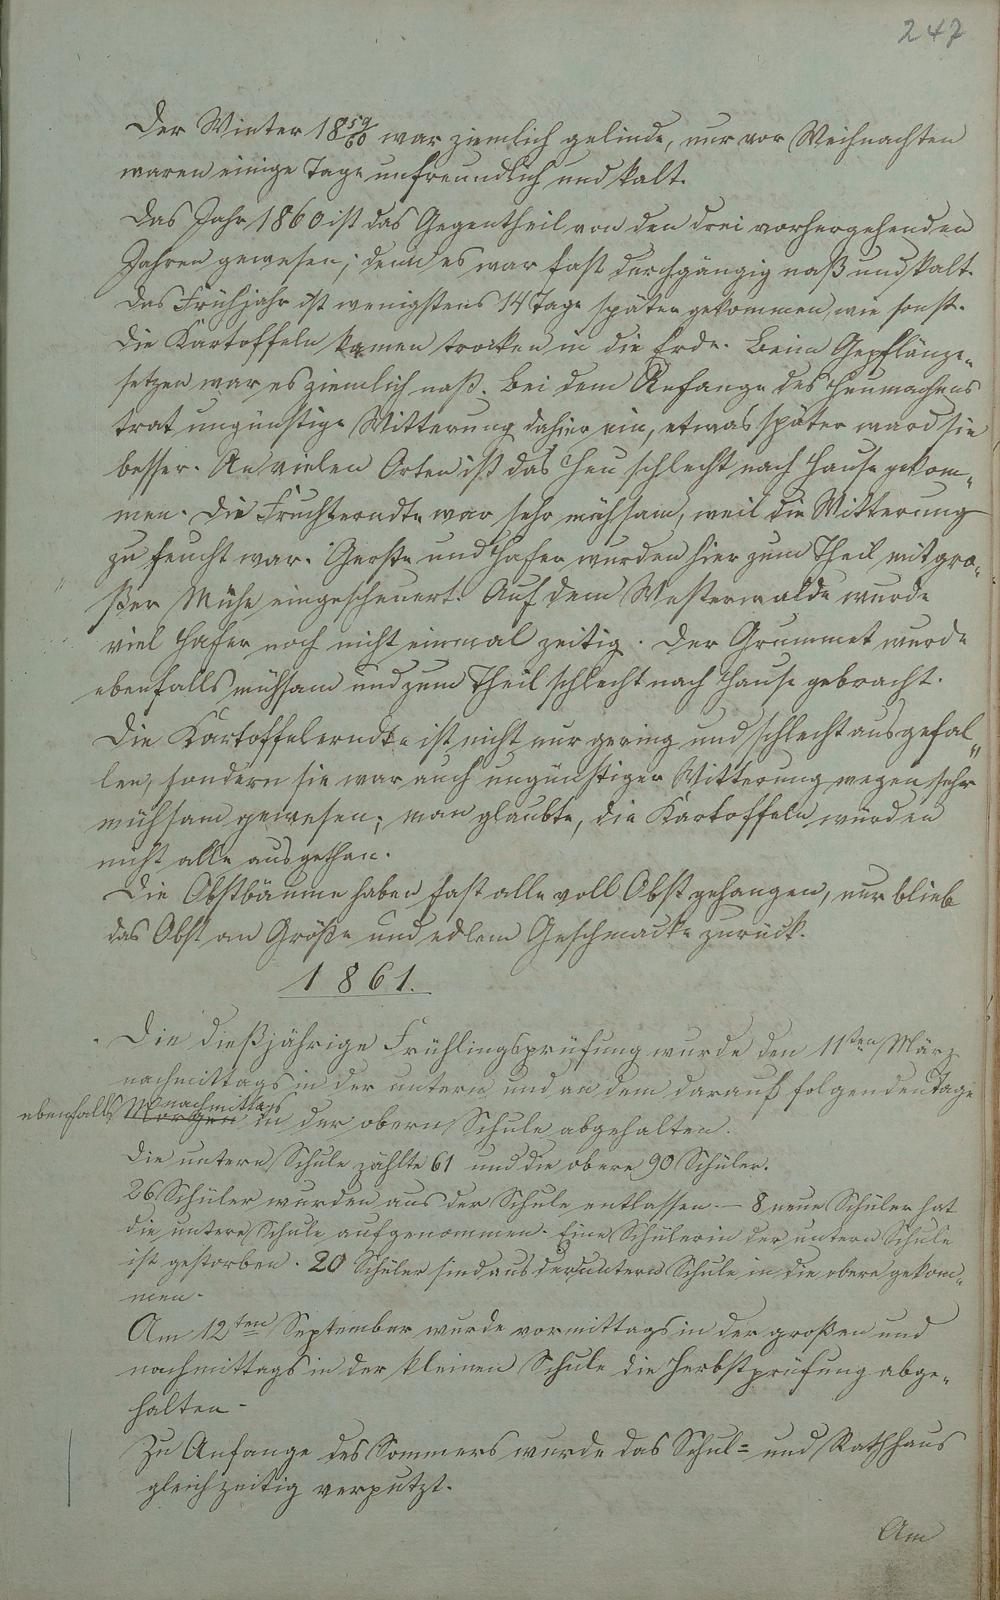 247
Der Winter 18 59/60 war ziemlich gelinde, nur vor Weihnachten
waren einige Tage unfreundlich und kalt.
Das Jahr 1860 ist das Gegentheil von den drei vorhergehenden
Jahren gewesen; denn es war fast durchgängig naß und kalt.
Das Frühjahr ist wenigstens 14 Tage später gekommen, wie sonst.
Die Kartoffeln kamen trocken in die Erde. Beim Gepflänze-
setzen war es ziemlich naß. Bei dem Anfange des Heumachens
trat ungünstige Witterung dahier ein, etwas später ward sie
besser. An vielen Orten ist das Heu schlecht nach Hause gekom-
men. Die Fruchterndte war sehr mühsam, weil die Witterung
zu feucht war. Gerste und Hafer wurden hier zum Theil mit gro-
ßer Mühe eingescheuert. Auf dem Westerwalde wurde
viel Hafer noch nicht einmal zeitig. Der Grummet wurde
ebenfalls mühsam und zum Theil schlecht nach Hause gebracht.
Die Kartoffelerndte ist nicht nur gering und schlecht ausgefal-
len, sondern sie war auch ungünstiger Witterung wegen sehr
mühsam gewesen; man glaubte, die Kartoffeln würden
nicht alle ausgethan.
Die Obstbäume haben fast alle voll Obst gehangen, nur blieb
das Obst an Größe und edlem Geschmacke zurück.
1861.
Die dießjährige Frühlingsprüfung wurde den 11ten März
nachmittags in der untern und an dem darauf folgenden Tage
ebenfalls Morgen nachmittags in der obern Schule abgehalten.
Die untere Schule zählte 61 und die obere 90 Schüler.
26 Schüler wurden aus der Schule entlassen. — 8 neue Schüler hat
die untere Schule aufgenommen. Eine Schülerin der untern Schule
ist gestorben. 20 Schüler sind aus der untern Schule in die obere gekom-
men.
Am 12ten September wurde vormittags in der großen und
nachmittags in der kleinen Schule die Herbstprüfung abge-
halten.
Zu Anfange des Sommers wurde das Schul= und Rathhaus
gleichzeitig verputzt.
Am